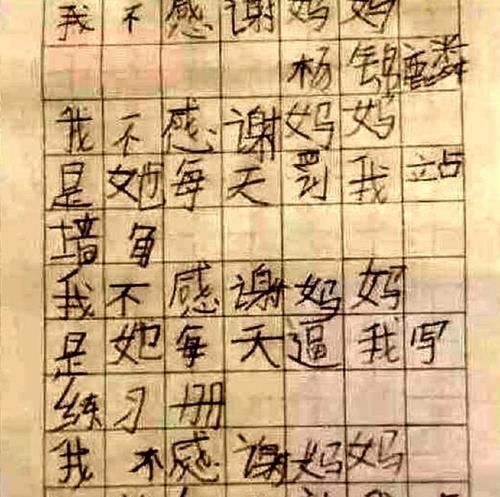 我不感谢妈妈
杨锦麟
我不感谢妈妈
是她每天罚我站
墙角
我不感谢妈妈
是她每天逼我写
练习册
我不感谢妈妈